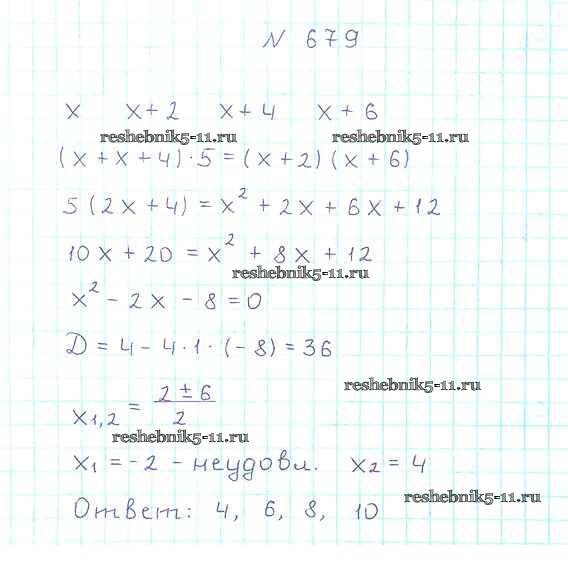 N 679
x x+2 x+4 x+6
reshebnik5-11.ru reshebnik5-11.ru
(x+x+4)·5=(x+2)(x+6)
5(2x+4)=x²+2x+6x+12
10x+20=x²+8x+12
reshebnik5-11.ru
x²-2x-8=0
D=4-4·1·(-8)=36
reshebnik5-11.ru
x1,2 = (2±6)/2
reshebnik5-11.ru
x1=-2-неудовл. x2=4
reshebnik5-11.ru
Ответ: 4, 6, 8, 10